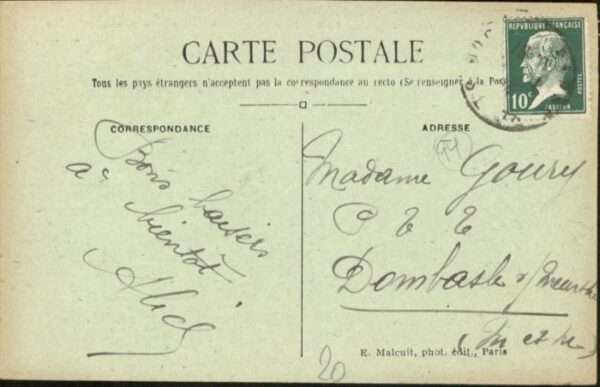 CARTE POSTALE
Tous les pays étrangers n'acceptent pas la correspondance au recto (Se renseigner à la Poste
REPUBLIQUE FRANÇAISE
POSTES
10c
PASTEUR
CORRESPONDANCE
Bons baisers
a bientôt
ADRESSE
Madame Goury
P T T
Dombasle s/ Meurthe
(M et M
E. Malcuit, phot. édit., Paris
20